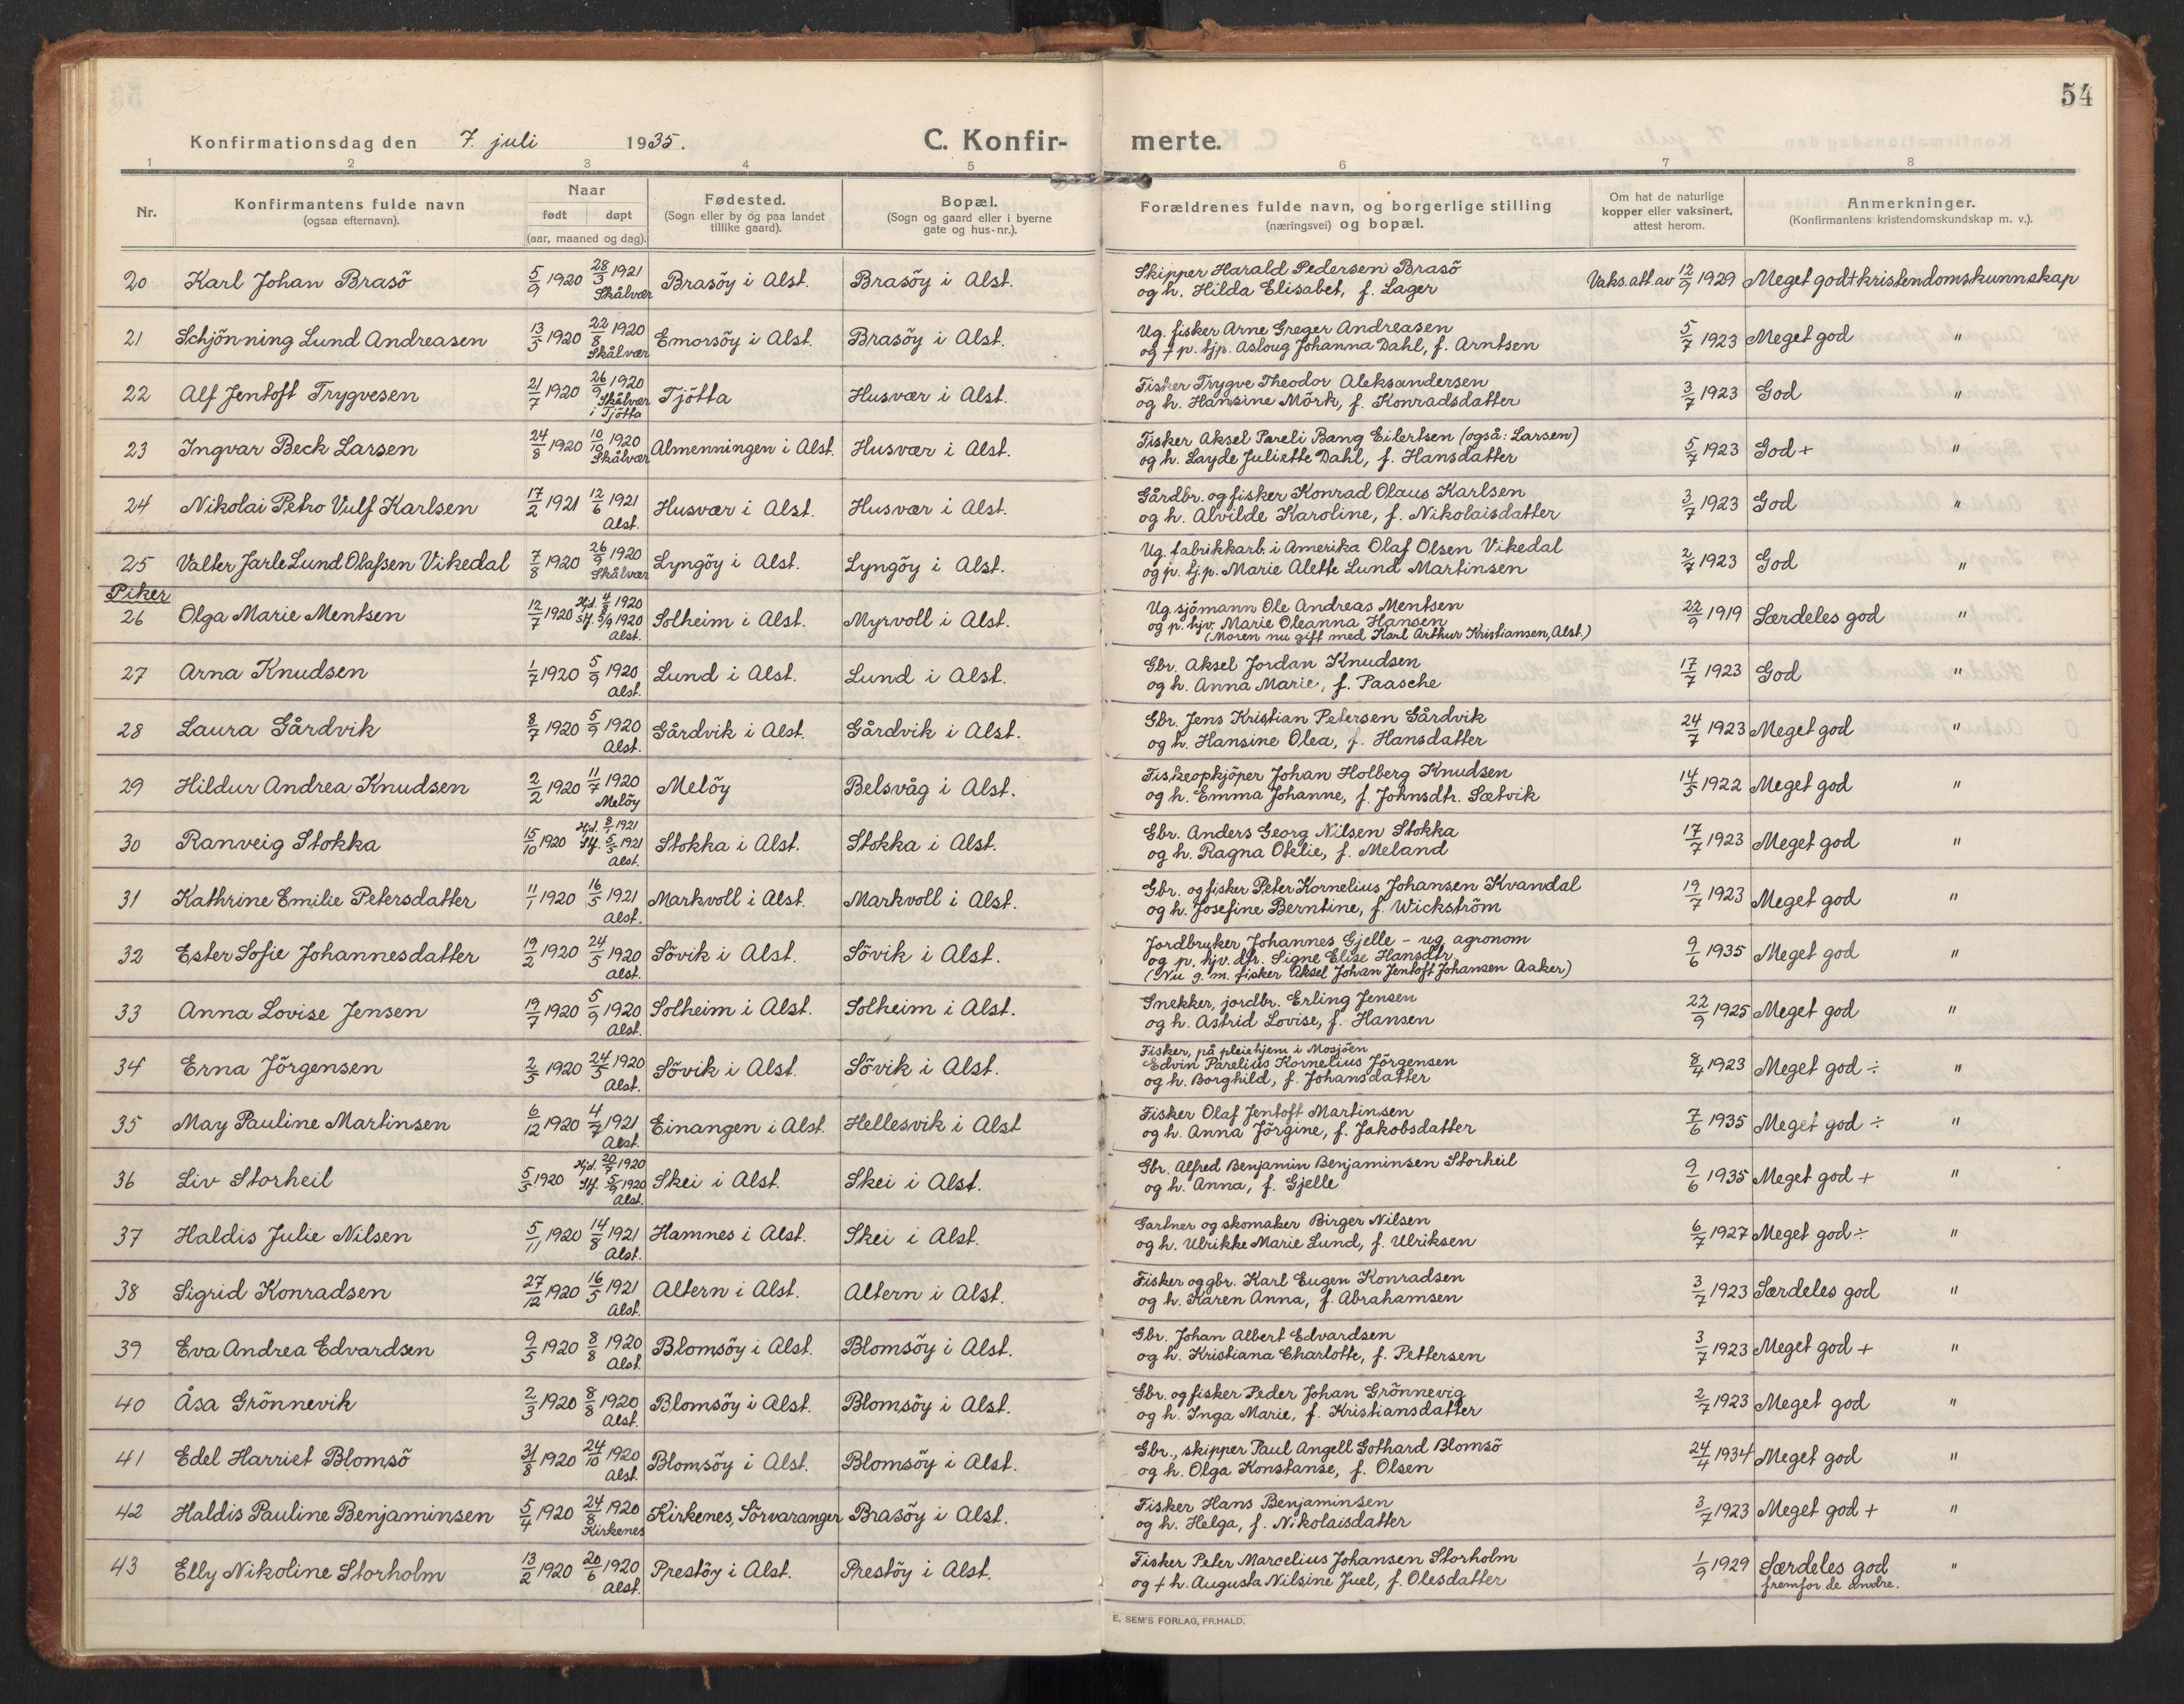 54
Konfirmationsdag den 7. juli 1935. C. Konfirmerte.
1 2 3 4 5 6 7 8
Nr.
Konfirmantens fulde navn
(ogsaa efternavn).
Naar
født døpt
(aar, maaned og dag).
Fødested.
(Sogn eller by og paa landet
tillike gaard).
Bopæl.
(Sogn og gaard eller i byerne
gate og hus-nr.).
Forældrenes fulde navn, og borgerlige stilling
(næringsvei) og bopæl.
Om hat de naturlige
kopper eller vaksinert,
attest herom.
Anmerkninger.
(Konfirmantens kristendomskundskap m. v.).
20 Karl Johan Brasö 5/9 1920 28/3 1921 Skålvær Brasöy i Alst. Brasöy i Alst. Skipper Harald Pedersen Brasö
og h. Hilda Elisabet, f. Lager Vaks.att.av 12/9 1929 Meget godt kristendomskunnskap
21 Schjönning Lund Andreasen 13/5 1920 22/8 1920 Skålvær Emorsöy i Alst. Brasöy i Alst. Ug. fisker Arne Greger Andreasen
og + p. tjp. Aslaug Johanna Dahl, f. Arntsen 5/7 1923 Meget god "
22 Alf Jentoft Trygvesen 21/7 1920 26/9 1920 Skålvær i Tjötta Tjötta Husvær i Alst. Fisker Trygve Theodor Aleksandersen
og h. Hansine Mörk, f. Konradsdatter 3/7 1923 God "
23 Ingvar Beck Larsen 24/8 1920 10/10 1920 Skålvær Almenningen i Alst. Husvær i Alst. Fisker Aksel Pareli Bang Eilertsen (også: Larsen)
og h. Layde Juliette Dahl, f. Hansdatter 5/7 1923 God + "
24 Nikolai Petro Vulf Karlsen 17/2 1921 12/6 1921 Alst. Husvær i Alst. Husvær i Alst. Gårdbr. og fisker Konrad Olaus Karlsen
og h. Alvilde Karoline, f. Nikolaisdatter 3/7 1923 God "
25 Valter Jarle Lund Olafsen Vikedal 7/8 1920 26/9 1920 Skålvær Lyngöy i Alst. Lyngöy i Alst. Ug. fabrikkarb. i Amerika Olaf Olsen Vikedal
og p. tj.p. Marie Alette Lund Martinsen 2/7 1923 God "
Piker
26 Olga Marie Mentsen 12/7 1920 Hjd. 4/8 1920 Stf. 5/9 1920 Alst. Solheim i Alst. Myrvoll i Alst. Ug. sjömann Ole Andreas Mentsen
og p. hjv. Marie Oleanna Hansen
(Moren nu gift med Karl Arthur Kristiansen, Alst.) 22/9 1919 Særdeles god "
27 Arna Knudsen 1/7 1920 5/9 1920 Alst. Lund i Alst. Lund i Alst. Gbr. Aksel Jordan Knudsen
og h. Anna Marie, f. Paasche 17/7 1923 God "
28 Laura Gårdvik 8/7 1920 5/9 1920 Alst. Gårdvik i Alst. Gårdvik i Alst. Gbr. Jens Kristian Petersen Gårdvik
og h. Hansine Olea, f. Hansdatter 24/7 1923 Meget god "
29 Hildur Andrea Knudsen 2/2 1920 11/7 1920 Melöy Melöy Belsvåg i Alst. Fiskeopkjöper Johan Holberg Knudsen
og h. Emma Johanne, f. Johnsdtr. Sætvik 14/5 1922 Meget god "
30 Ranveig Stokka 15/10 1920 Hjd. 8/1 1921 Stf. 5/5 1921 Alst. Stokka i Alst. Stokka i Alst. Gbr. Anders Georg Nilsen Stokka
og h. Ragna Otelie, f. Meland 17/7 1923 Meget god "
31 Kathrine Emilie Petersdatter 11/1 1920 16/5 1921 Alst. Markvoll i Alst. Markvoll i Alst. Gbr. og fisker Peter Kornelius Johansen Kvandal
og h. Josefine Berntine, f. Wickström 19/7 1923 Meget god "
32 Ester Sofie Johannesdatter 19/2 1920 24/5 1920 Alst. Sövik i Alst. Sövik i Alst. Jordbruker Johannes Gjelle - ug. agronom
og p. hjv. dtr. Signe Elise Hansdtr.
(Nu g. m. fisker Aksel Johan Jentoft Johansen Aaker) 9/6 1935 Meget god "
33 Anna Lovise Jensen 19/7 1920 5/9 1920 Alst. Solheim i Alst. Solheim i Alst. Snekker, jordbr. Erling Jensen
og h. Astrid Lovise, f. Hansen 22/9 1925 Meget god "
34 Erna Jörgensen 2/5 1920 24/5 1920 Alst. Sövik i Alst. Sövik i Alst. Fisker, på pleiehjem i Mosjöen
Edvin Parelius Kornelius Jörgensen
og h. Borghild, f. Johansdatter 8/4 1923 Meget god ÷ "
35 May Pauline Martinsen 6/12 1920 4/7 1921 Alst. Einangen i Alst. Hellesvik i Alst Fisker Olaf Jentoft Martinsen
og h. Anna Jörgine, f. Jakobsdatter 7/6 1935 Meget god ÷ "
36 Liv Storheil 5/5 1920 Hjd. 20/7 1920 Stf. 5/9 1920 Alst. Skei i Alst. Skei i Alst. Gbr. Alfred Benjamin Benjaminsen Storheil
og h. Anna, f. Gjelle 9/6 1935 Meget god + "
37 Haldis Julie Nilsen 5/11 1920 14/8 1921 Alst. Hamnes i Alst. Skei i Alst. Gartner og skomaker Birger Nilsen
og h. Ulrikke Marie Lund, f. Ulriksen 6/7 1927 Meget god ÷ "
38 Sigrid Konradsen 27/12 1920 16/5 1921 Alst. Altern i Alst. Altern i Alst. Fisker og gbr. Karl Eugen Konradsen
og h. Karen Anna, f. Abrahamsen 3/7 1923 Særdeles god "
39 Eva Andrea Edvardsen 9/5 1920 8/8 1920 Alst. Blomsöy i Alst. Blomsöy i Alst. Gbr. Johan Albert Edvardsen
og h. Kristiana Charlotte, f. Pettersen 3/7 1923 Meget god + "
40 Åsa Grönnevik 2/3 1920 8/8 1920 Alst. Blomsöy i Alst. Blomsöy i Alst. Gbr. og fisker Peder Johan Grönnevig
og h. Inga Marie, f. Kristiansdatter 2/7 1923 Meget god "
41 Edel Harriet Blomsö 31/8 1920 24/10 1920 Alst. Blomsöy i Alst. Blomsöy i Alst. Gbr., skipper Paul Angell Gothard Blomsö
og h. Olga Konstanse, f. Olsen 24/4 1934 Meget god "
42 Haldis Pauline Benjaminsen 5/4 1920 24/8 1920 Kirkenes Kirkenes, Sörvaranger Brasöy i Alst. Fisker Hans Benjaminsen
og h. Helga, f. Nikolaisdatter 3/7 1923 Meget god + "
43 Elly Nikoline Storholm 13/2 1920 20/6 1920 Alst. Prestöy i Alst. Prestöy i Alst. Fisker Peter Marcelius Johansen Storholm
og + h. Augusta Nilsine Juel, f. Olesdatter 1/9 1929 Særdeles god "
fremfor de andre.
E. SEM'S FORLAG, FR.HALD.